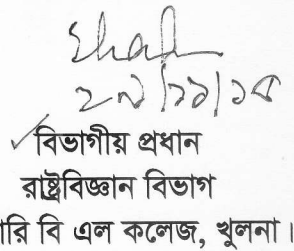 ২৯/১১/১৫
বিভাগীয় প্রধান
রাষ্ট্রবিজ্ঞান বিভাগ
রি বি এল কলেজ, খুলনা।